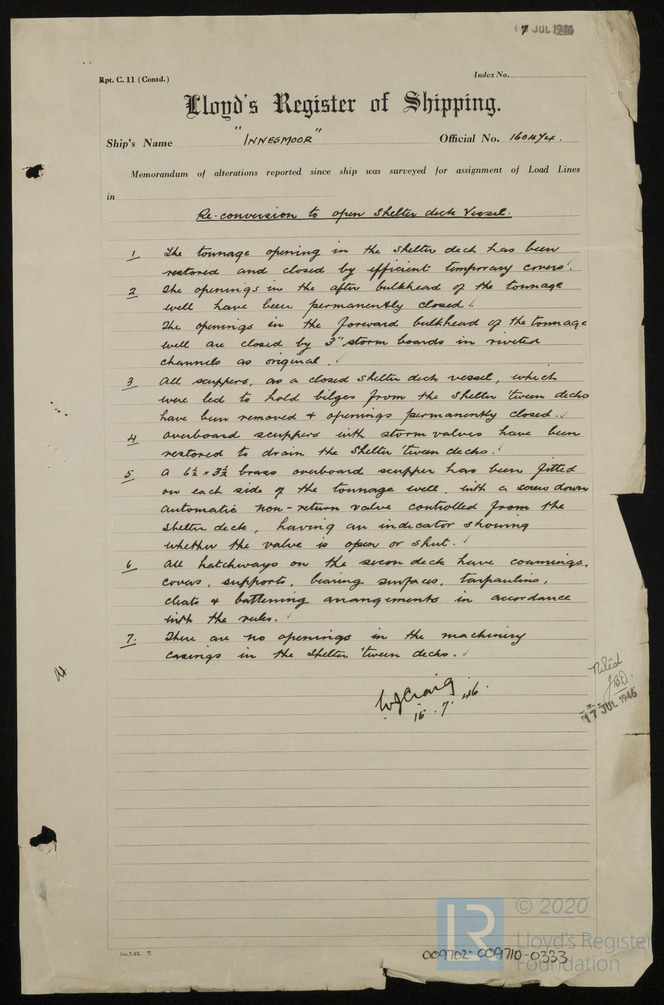 17 JUL 1946
Rpt. C. 11 (Contd.)
Index No.
Lloyd's Register of Shipping.
Ship's Name "INNESMOOR" Official No. 160474.
Memorandum of alterations reported since ship was surveyed for assignment of Load Lines
in
Re-conversion to open Shelter deck Vessel.
1 The tonnage opening in the shelter deck has been
restored and closed by efficient temporary covers.
2 The openings in the after bulkhead of the tonnage
well have been permanently closed.
The openings in the forward bulkhead of the tonnage
well are closed by 3" storm boards in riveted
channels as original.
3 All scuppers, as a closed shelter deck vessel, which
were led to hold bilges from the shelter tween decks
have been removed & openings permanently closed.
4 Overboard scuppers with storm valves have been
restored to drain the shelter 'tween decks.
5 A 6½ x 3½ brass overboard scupper has been fitted
on each side of the tonnage well, with a screw down
automatic non-return valve controlled from the
shelter deck, having an indicator showing
whether the valve is open or shut.
6 All hatchways on the secon deck have coamings,
covers, supports, bearing surfaces, tarpaulins,
cleats & battening arrangements in accordance
with the rules.
7. There are no openings in the machinery
casings in the shelter 'tween decks.
WJCraig
15.7.46.
Noted
17 JUL 1946
T.
© 2020
LR
Lloyd's Register
Foundation
009702-009710-0333